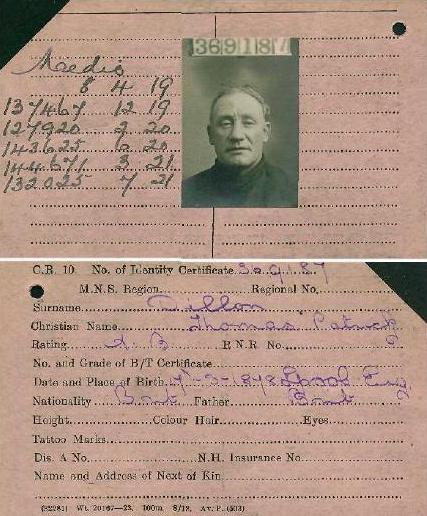 369187
8 4 19
137467 12 19
127920 2 20
143625 6 20
144671 3 21
132025 7 21
C.R. 10. No. of Identity Certificate 369187
M.N.S. Region Regional No.
Surname Dillon
Christian Name Thomas Patrick
Rating A.B. R.N.R. No.
No. and Grade of B/T Certificate
Date and Place of Birth 1878 Lpool Eng
Nationality Brit Father Brit
Height Colour Hair Eyes
Tattoo Marks
Dis. A No. N.H. Insurance No.
Name and Address of Next of Kin
(32281) Wt. 20167—23. 100m. 8/18. Av. P. (503)